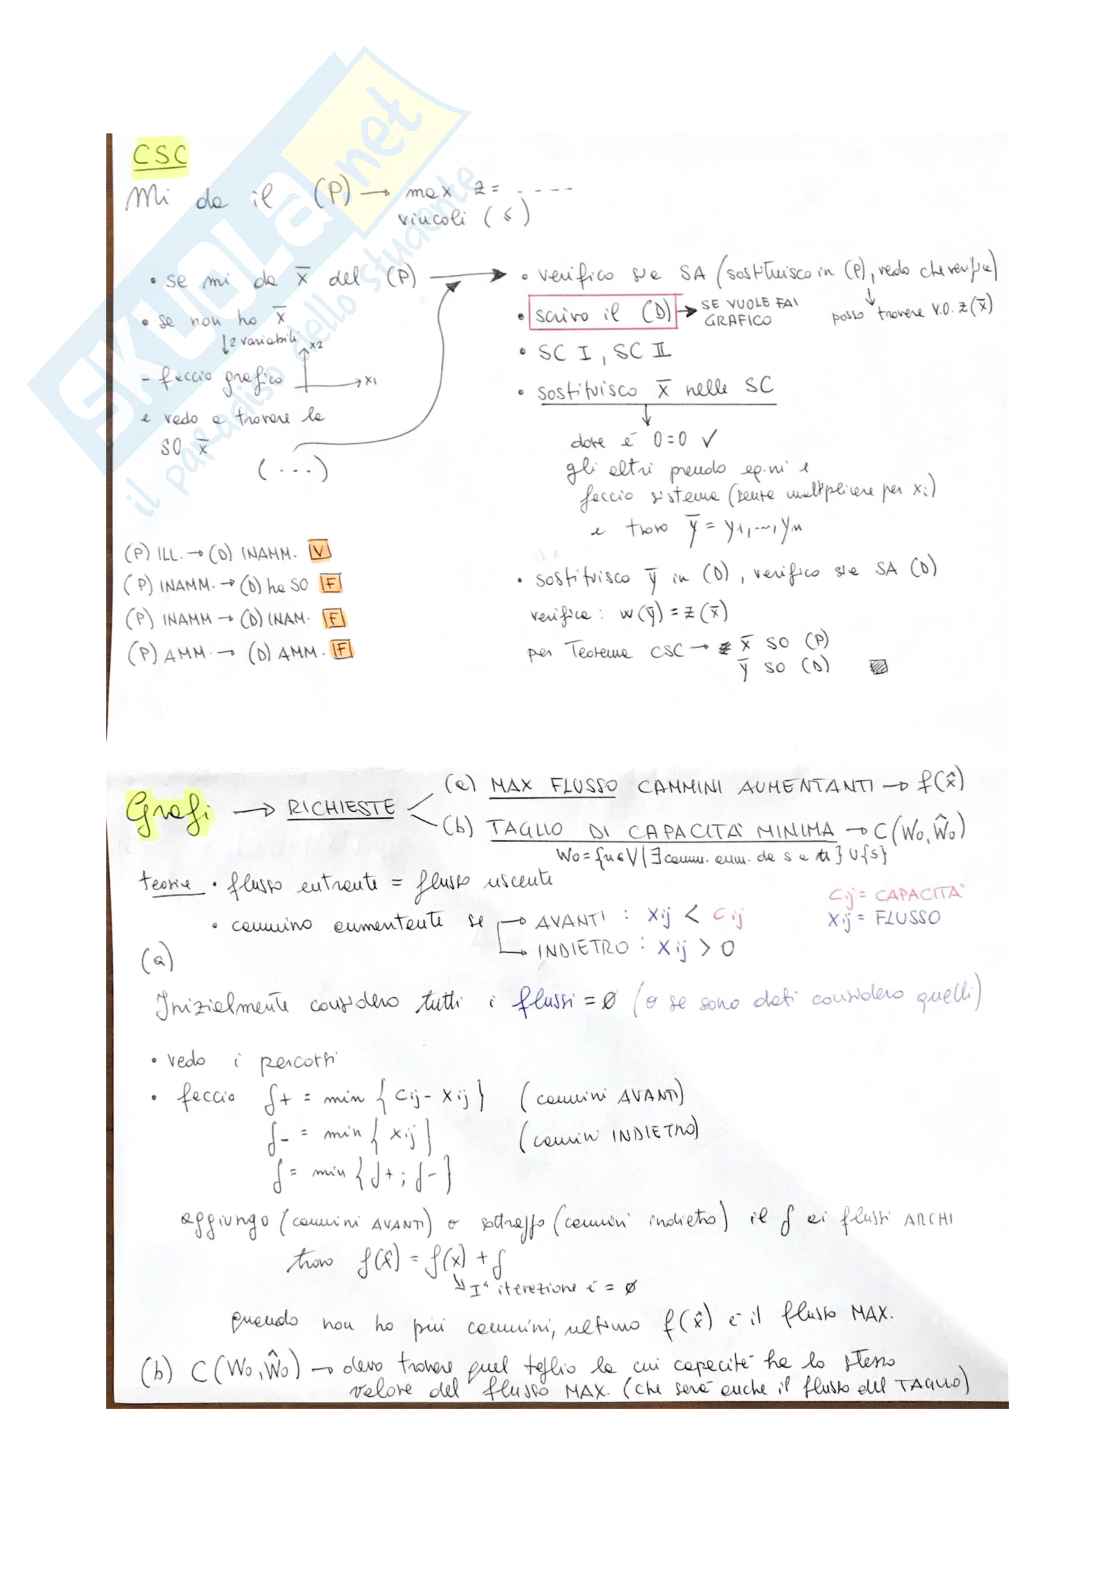 CSC
Mi da il (P) → max z = .....
vincoli (≤)
• se mi da x̅ del (P)
• se non ho x̅
↓ 2 variabili
- faccio grafico
x2
x1
e vado a trovare la
SO x̅
(...)
• verifico sia SA (sostituisco in (P), vedo che verifica)
↓
posso trovare V.O. z(x̅)
• scrivo il (D) → SE VUOLE FAI
GRAFICO
• SC I, SC II
• sostituisco x̅ nelle SC
↓
dove è 0=0 ✓
gli altri prendo eq.ni e
faccio sistema (senza moltiplicare per xi)
e trovo y̅ = y1,...,yn
• sostituisco y̅ in (D), verifico sia SA (D)
verifica: w(y̅) = z(x̅)
per Teorema CSC → x̅ SO (P)
y̅ SO (D)
(P) ILL. → (D) INAMM. V
(P) INAMM. → (D) ha SO F
(P) INAMM → (D) INAM. F
(P) AMM. → (D) AMM. F
Grafi → RICHIESTE
(a) MAX FLUSSO CAMMINI AUMENTANTI → f(x̂)
(b) TAGLIO DI CAPACITA' MINIMA → C(Wo,Ŵo)
Wo={n∈V|∃ camm. aum. da s a n} ∪{s}
teoria • flusso entrante = flusso uscente
Cij = CAPACITA'
Xij = FLUSSO
• cammino aumentante se → AVANTI : Xij < Cij
→ INDIETRO : Xij > 0
(a)
Inizialmente considero tutti i flussi = ø (o se sono dati considero quelli)
• vedo i percorsi
• faccio δ+ = min { Cij - Xij } (cammini AVANTI)
δ- = min { Xij } (cammini INDIETRO)
δ = min { δ+ ; δ- }
aggiungo (cammini AVANTI) o sottraggo (cammini indietro) il δ ai flussi ARCHI
trovo f(x̂) = f(x) + δ
↘ Iª iterazione è = ø
quando non ho più cammini, ultimo f(x̂) è il flusso MAX.
(b) C(Wo,Ŵo) → devo trovare quel taglio la cui capacità ha lo stesso
valore del flusso MAX. (che sarà anche il flusso del TAGLIO)
SKUOLA.net
il paradiso dello studente